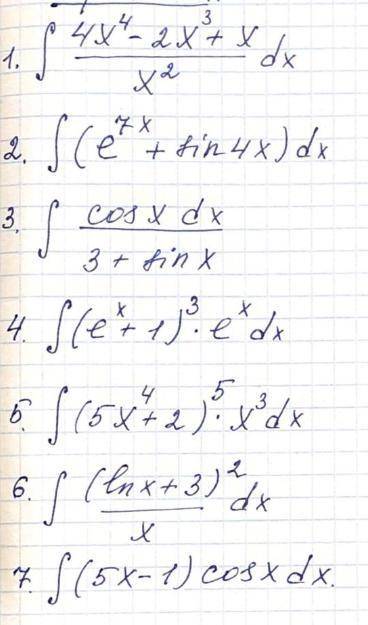 1. ∫ (4x⁴ - 2x³ + x)/x² dx
2. ∫(e⁷ˣ + sin4x)dx
3. ∫ (cosx dx)/(3 + sinx)
4. ∫(eˣ + 1)³ · eˣdx
5. ∫(5x⁴ + 2)⁵ · x³dx
6. ∫ (lnx + 3)²/x dx
7. ∫(5x - 1) cosx dx.